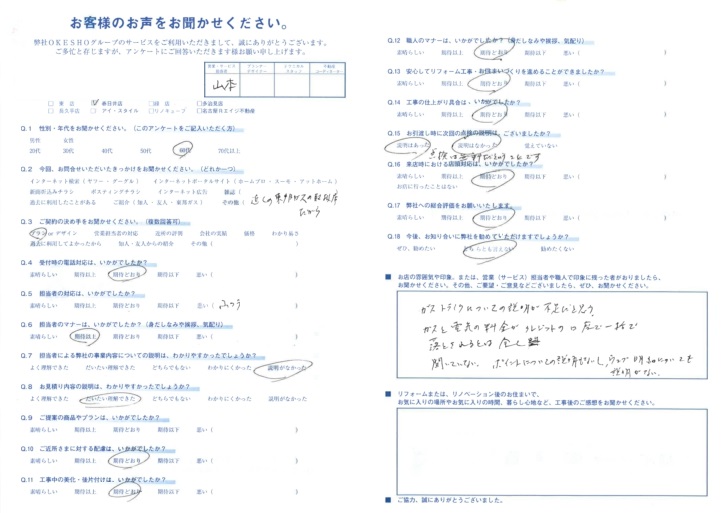 お客様のお声をお聞かせください。
弊社OKESHOグループのサービスをご利用いただきまして、誠にありがとうございます。
ご多忙と存じますが、アンケートにご回答いただきます様お願い申し上げます。
山本
Q.1 性別・年代をお聞かせください。（このアンケートをご記入いただく方）
男性 女性
20代 30代 40代 50代 60代 70代以上
Q.2 今回、お問合せいただいたきっかけをお聞かせください。（どれか一つ）
インターネット検索（ヤフー・グーグル） インターネットポータルサイト（ホームプロ・スーモ・アットホーム）
新聞折込みチラシ ポスティングチラシ インターネット広告 雑誌（
過去に利用したことがある ご紹介（知人・友人・東邦ガス） その他（ 近くの東邦ガスの
だから
Q.3 ご契約の決め手をお聞かせください。（複数回答可）
プラン or デザイン 営業担当者の対応 近所の評判 会社の実績 価格 わかり易さ
過去に利用してよかったから 知人・友人からの紹介 その他（ ）
Q.4 受付時の電話対応は、いかがでしたか？
素晴らしい 期待以上 期待どおり 期待以下 悪い（ ）
Q.5 担当者の対応は、いかがでしたか？
素晴らしい 期待以上 期待どおり 期待以下 悪い（ ふつう ）
Q.6 担当者のマナーは、いかがでしたか？（身だしなみや挨拶、気配り）
素晴らしい 期待以上 期待どおり 期待以下 悪い（ ）
Q.7 担当者による弊社の事業内容についての説明は、わかりやすかったでしょうか？
よく理解できた だいたい理解できた どちらでもない わかりにくかった 説明がなかった
Q.8 お見積り内容の説明は、わかりやすかったでしょうか？
よく理解できた だいたい理解できた どちらでもない わかりにくかった 説明がなかった
Q.9 ご提案の商品やプランは、いかがでしたか？
素晴らしい 期待以上 期待どおり 期待以下 悪い（ ）
Q.10 ご近所さまに対する配慮は、いかがでしたか？
素晴らしい 期待以上 期待どおり 期待以下 悪い（ ）
Q.11 工事中の美化・後片付けは、いかがでしたか？
素晴らしい 期待以上 期待どおり 期待以下 悪い（ ）
Q.12 職人のマナーは、いかがでしたか？（身だしなみや挨拶、気配り）
素晴らしい 期待以上 期待どおり 期待以下 悪い（ ）
Q.13 安心してリフォーム工事・お住まいづくりを進めることができましたか？
素晴らしい 期待以上 期待どおり 期待以下 悪い（ ）
Q.14 工事の仕上がり具合は、いかがでしたか？
素晴らしい 期待以上 期待どおり 期待以下 悪い（ ）
Q.15 お引渡し時に次回の点検の説明は、ございましたか？
説明はあった 説明はなかった 覚えていない
Q.16 来店時における店頭対応は、いかがでしたか？
素晴らしい 期待以上 期待どおり 期待以下 悪い（ ）
お店に行ったことはない
Q.17 弊社への総合評価をお願いいたします。
素晴らしい 期待以上 期待どおり 期待以下 悪い（ ）
Q.18 今後、お知り合いに弊社を勧めていただけますでしょうか？
ぜひ、勧めたい どちらとも言えない 勧めたくない
■ お店の雰囲気や印象、または、営業（サービス）担当者や職人で印象に残った者がおりましたら、
お聞かせください。その他、ご要望・ご意見などございましたら、ぜひ、お聞かせください。
ガストリクについての説明が不足だと思う。
ガスと電気の料金がクレジットの口座で一括で
落とされるとは全く
聞いていない。ポイントについての説明もないし、ウェブ明細についても
説明がない。
■ リフォームまたは、リノベーション後のお住まいで、
お気に入りの場所やお気に入りの時間、暮らし心地など、工事後のご感想をお聞かせください。
■ ご協力、誠にありがとうございました。